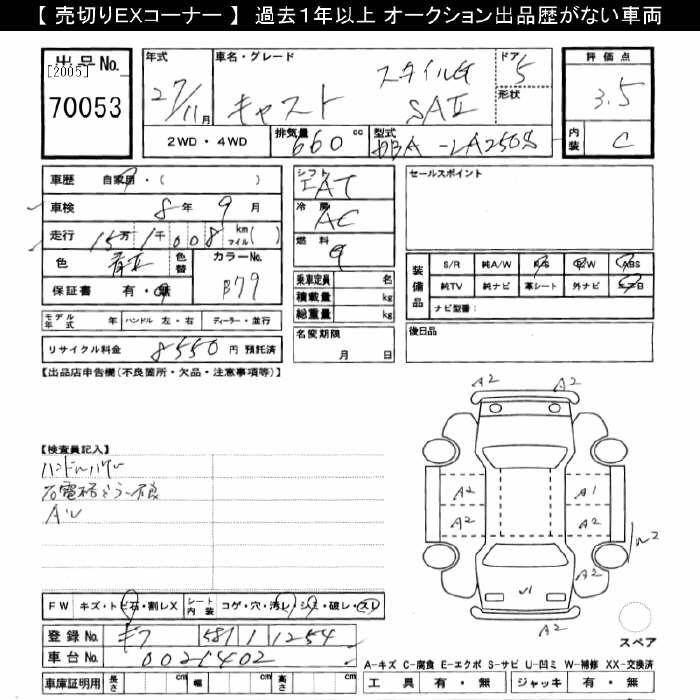 【 売切りEXコーナー 】 過去１年以上 オークション出品歴がない車両
出品No.
[2005]
70053
年式
27/11月
車名・グレード
キャスト スタイルG SAⅡ
ドア
5
形状
評価点
3.5
内装
C
2WD・4WD
排気量
660 cc
型式
DBA-LA250S
車歴 自家用・( )
車検 8年 9月
走行 15万 1千 008 km マイル( )
色
色替
カラーNo.
B79
保証書 有・無
シフト
AT
冷房
AC
燃料
乗車定員 名
積載量 kg
総重量 kg
名変期限
月 日
セールスポイント
装備品
S/R 純A/W P/S P/W ABS
純TV 純ナビ 革シート 外ナビ エアB
ナビ型番:
後日品
モデル年式 年 ハンドル 左・右 ディーラー・並行
リサイクル料金 8550 円 預託済
【出品店申告欄(不良箇所・欠品・注意事項等)】
【検査員記入】
石電格ミラー不良
FW キズ・トビ石・割レX
シート内装 コゲ・穴・汚レ・シミ・破レ・スレ
登録No. ギフ 581 1254
車台No. 0021402
車庫証明用 長さ cm 幅 cm 高さ cm
A2
A2
A2 A1
A2 A2
W2
A2
A2
スペア
A-キズ C-腐食 E-エクボ S-サビ U-凹ミ W-補修 XX-交換済
工具 有・無 ジャッキ 有・無